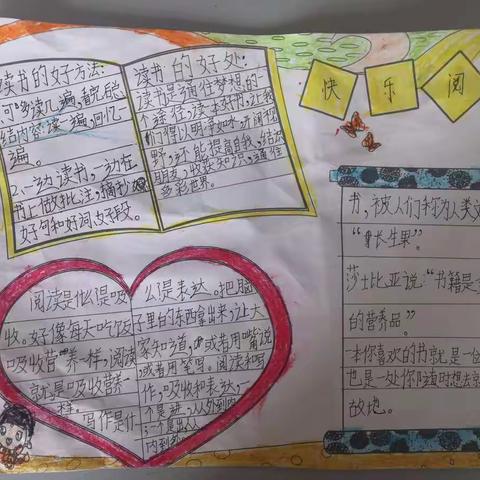 快乐阅
读书的好方法:
可多读几遍,看完后
结内容读一遍,回忆
遍。
2.一动读书,一动在
书上做批注,摘抄
好句和好词好段。
读书的好处:
读书是通往梦想的一
个途径,读本好书,让我
们得以明净如水,开阔视
野,还能提高自我,结识
朋友,收获知识,通往
多彩世界。
书,被人们称为人类文
“长生果”。
莎士比亚说:“书籍是
的营养品。”
一本你喜欢的书就是一位
也是一处你随时想去就
故地。
阅读是什么是吸
收。好像每天吃饭
吸收营养一样,阅读
就是吸收营养一
样。写作是什
么是表达。把脑
子里的东西拿出来,让大
家知道,或者用嘴说
或者用笔写。阅读和写
作,吸收和表达,一
个是进,从外到内
一个是出,从
内到